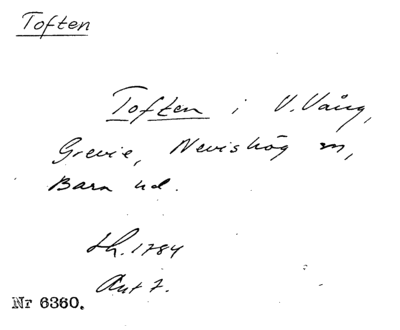 Toften
Toften i V. Vång,
Grevie, Nevishög sn,
Bara hd.
Lh. 1784
Akt 7.
Nr 6360.